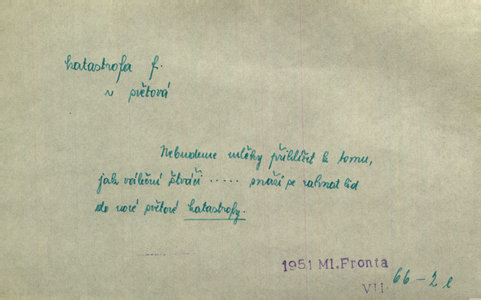 katastrofa f.
v světová
Nebudeme mlčky přihlížet k tomu,
jak váleční štváči ..... snaží se zahnat lid
do nové světové katastrofy.
1951 Ml. Fronta
VII. 66-2 l